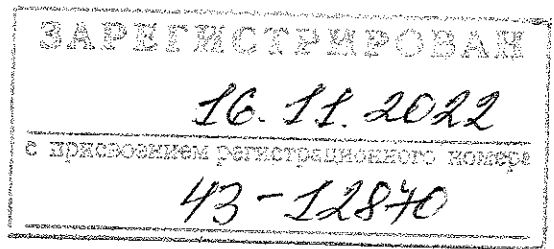 ЗАРЕГИСТРИРОВАН
16.11.2022
с присвоением регистрационного номера
43-12870